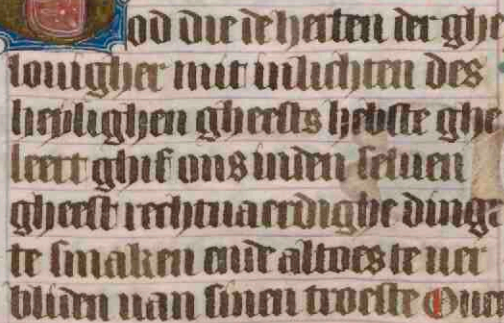 God die de herten der ghe
louigher mit inlichten des
heylighen gheests hebste ghe
leert ghif ons inden seluen
gheest rechtuaerdighe dinge
te smaken ende altoes te uer
bliden uan sinen troeste Ouer